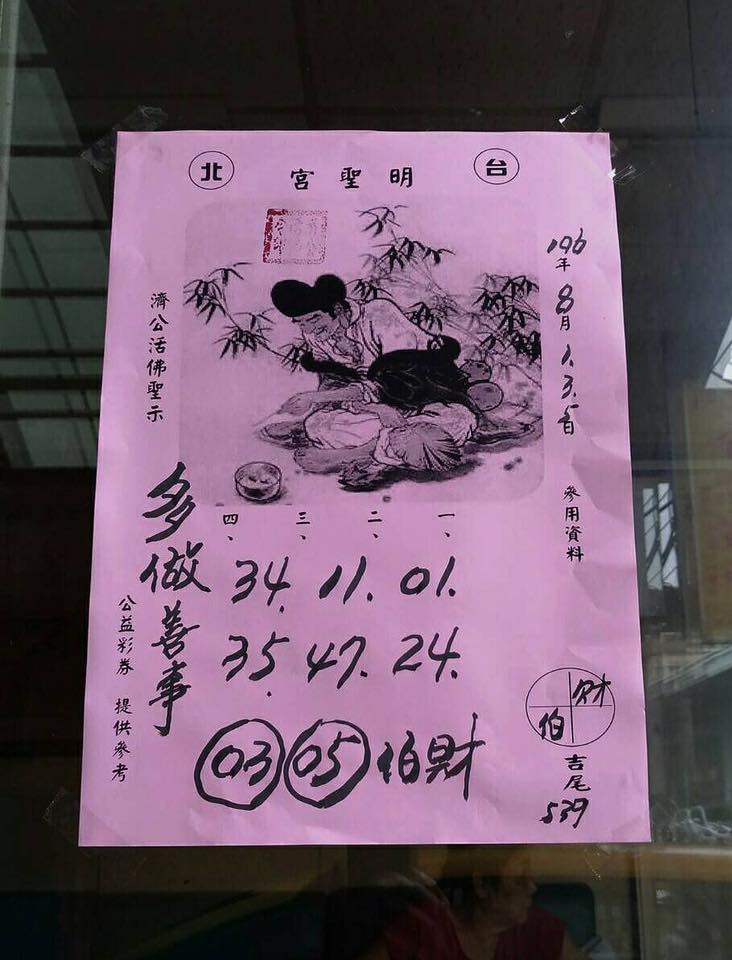 台 明聖宮 北
106年8月1.3.5日
參用資料
濟公活佛聖示
多做善事
公益彩券 提供參考
四、 三、 二、 一、
34. 11. 01.
35. 47. 24.
03 05 伯財
財
伯
吉尾
539